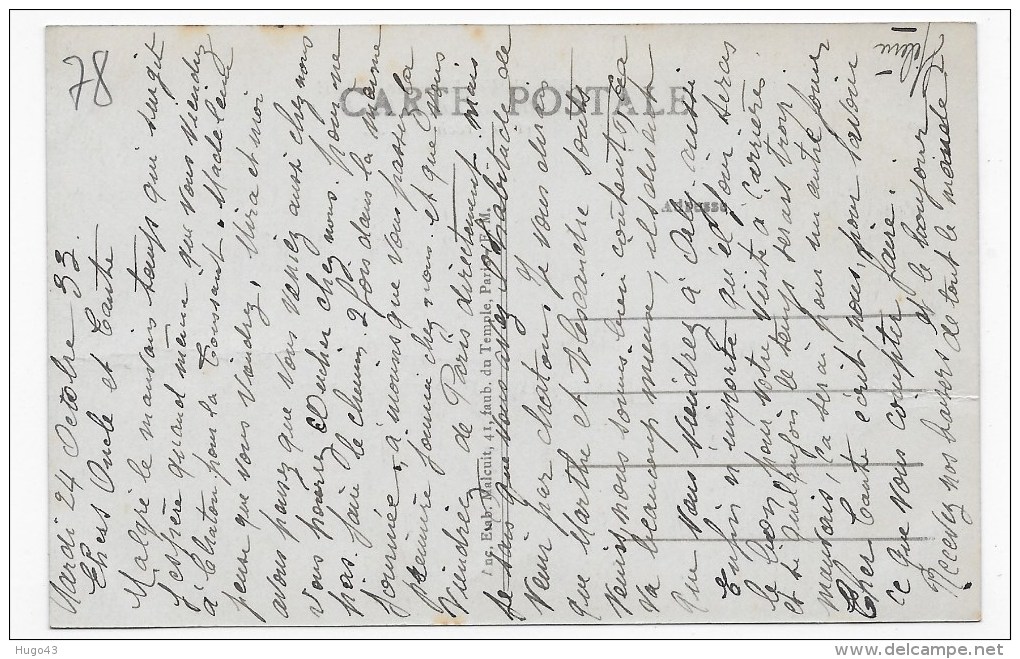 78
CARTE POSTALE
Adresse
Anc. Etab. Malcuit, 41, faub. du Temple, Paris E. M.
Mardi 24 Octobre 33
Chers Oncle et Tante
Malgré le mauvais temps qui surgit
j'espère quand même que vous viendrez
à Chatou pour la Toussaint. Madeleine
pense que vous viendrez, et moi
nous pensez que vous veniez aussi chez nous
vous pourrez coucher chez nous. pour ne
pas faire le chemin 2 fois dans la même
journée, à moins que vous passiez la
première journée chez nous. et que vous
viendrez de Paris directement. mais
je sais que vous avez l'habitude de
venir par Chatou, je vous dirai
que Marthe et Alexandre sont
venus nous sommes bien contents. Ça
va beaucoup mieux, ils disent
que vous viendrez à eux aussi
Enfin n'importe quel jour seras
le bon pour votre visite à Carrières
et si quelquefois le temps seras trop
mauvais, ça serai pour un autre jour
Cher Tante écrit nous, pour savoir
ce que vous comptez faire.
Recevez nos baisers et le bonjour
de tout le monde
Hugo43
www.delcampe.net